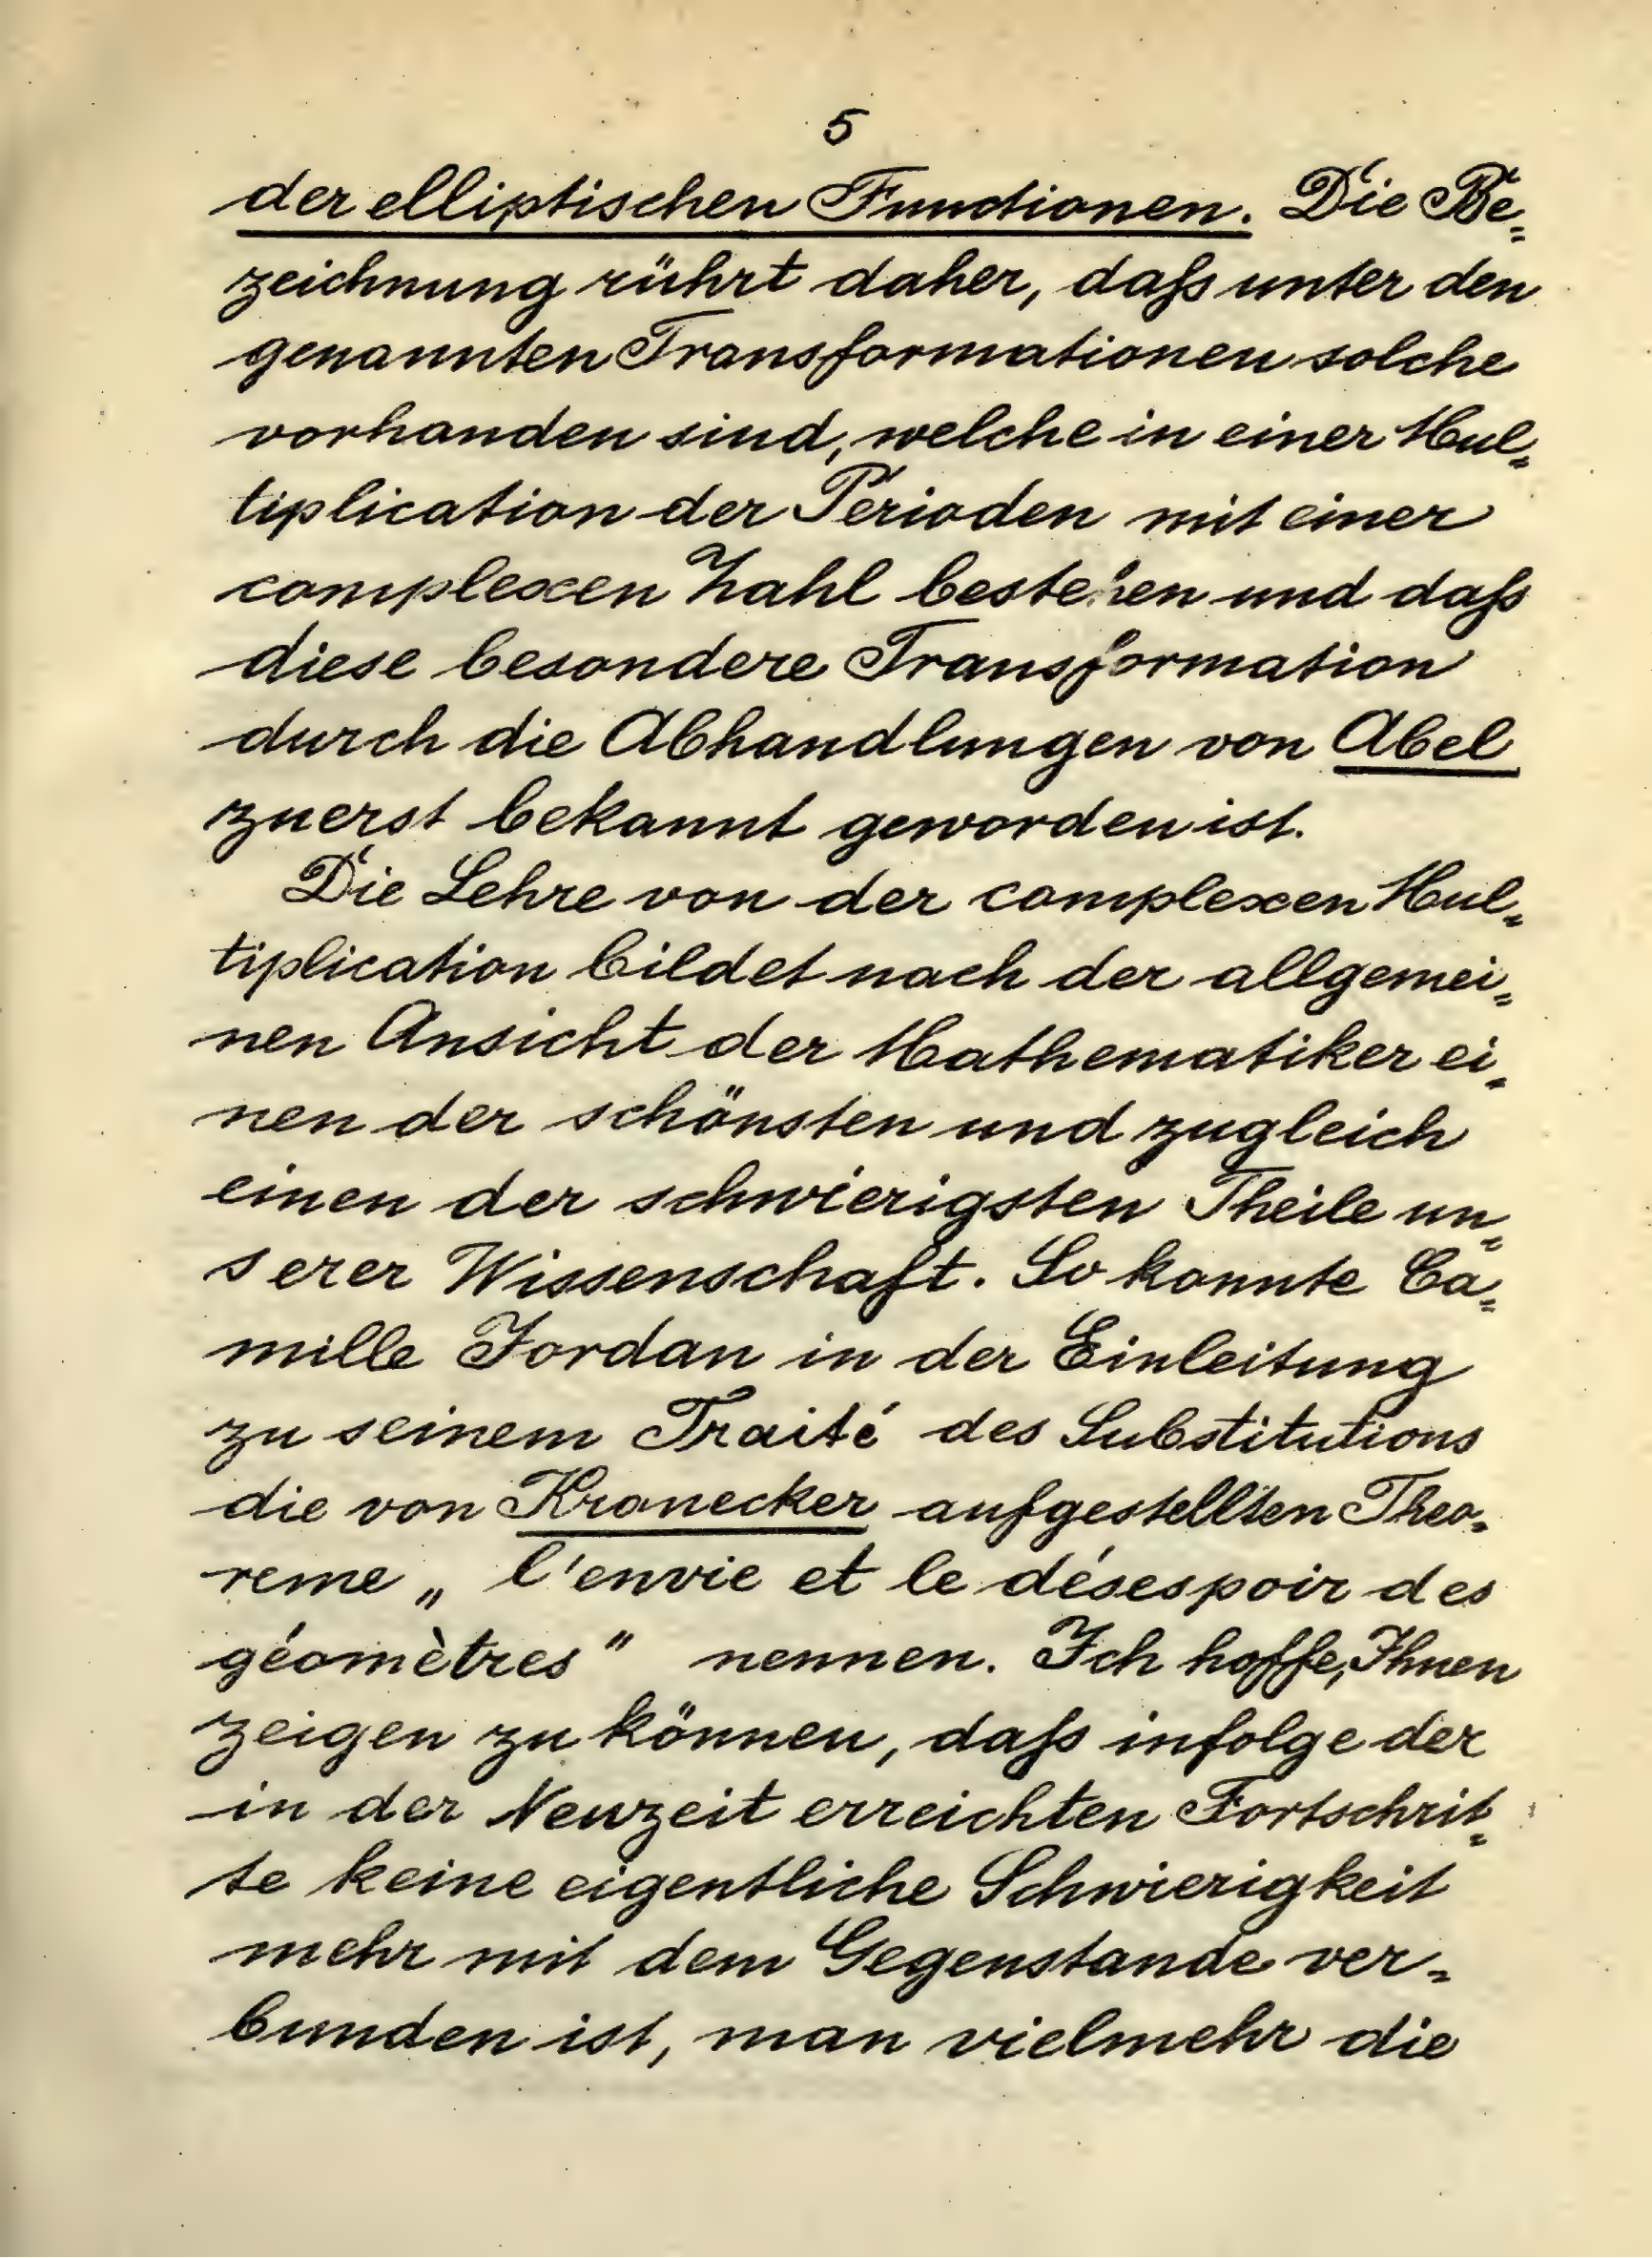 5
der elliptischen Functionen. Die Be=
zeichnung rührt daher, daß unter den
genannten Transformationen solche
vorhanden sind, welche in einer Mul=
tiplication der Perioden mit einer
complexen Zahl bestehen und daß
diese besondere Transformation
durch die Abhandlungen von Abel
zuerst bekannt geworden ist.
Die Lehre von der complexen Mul=
tiplication bildet nach der allgemei=
nen Ansicht der Mathematiker ei=
nen der schönsten und zugleich
einen der schwierigsten Theile un=
serer Wissenschaft. So konnte Ca=
mille Jordan in der Einleitung
zu seinem Traité des Substitutions
die von Kronecker aufgestellten Theo=
reme „ l'envie et le désespoir des
géomètres" nennen. Ich hoffe, Ihnen
zeigen zu können, daß infolge der
in der Neuzeit erreichten Fortschrit=
te keine eigentliche Schwierigkeit
mehr mit dem Gegenstande ver=
bunden ist, man vielmehr die